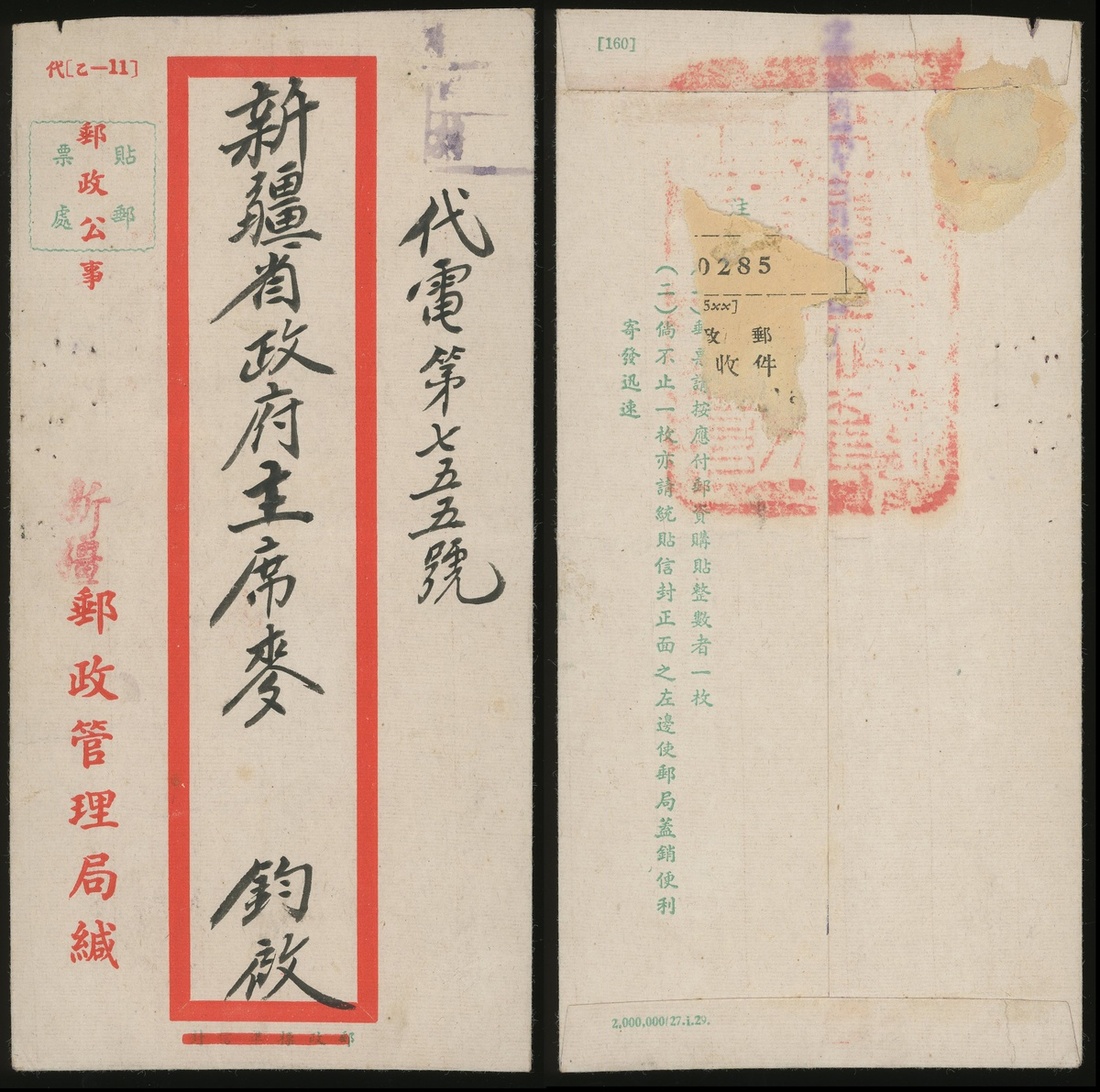 代[乙—11]
貼郵
票處
郵政公事
代電第七五五號
新疆省政府主席麥 鈞啟
新疆郵政管理局緘
郵政標準信封
[160]
注
0285
5xx]
郵件
收
郵票請按應付郵資購貼整數者一枚
(二)倘不止一枚亦請統貼信封正面之左邊使郵局蓋銷便利
寄發迅速
2,000,000/27.1.29.